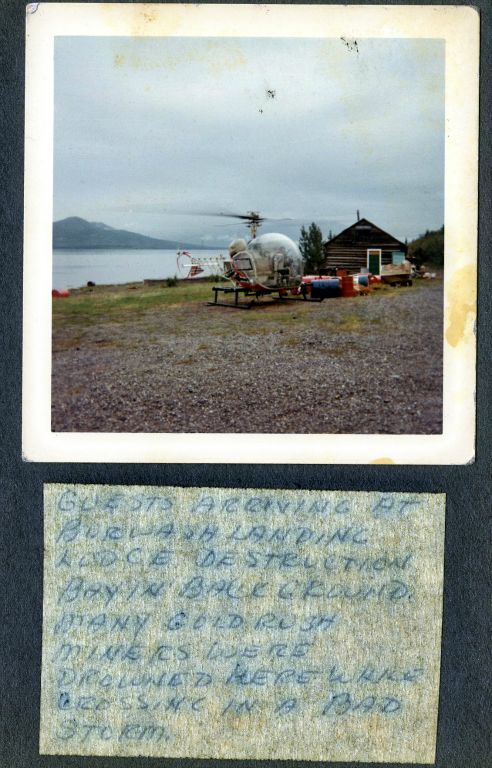 GUESTS ARRIVING AT
BURWASH LANDING
LODGE DESTRUCTION
BAY IN BACKGROUND.
MANY GOLD RUSH
MINERS WERE
DROWNED HERE WHILE
CROSSING IN A BAD
STORM.